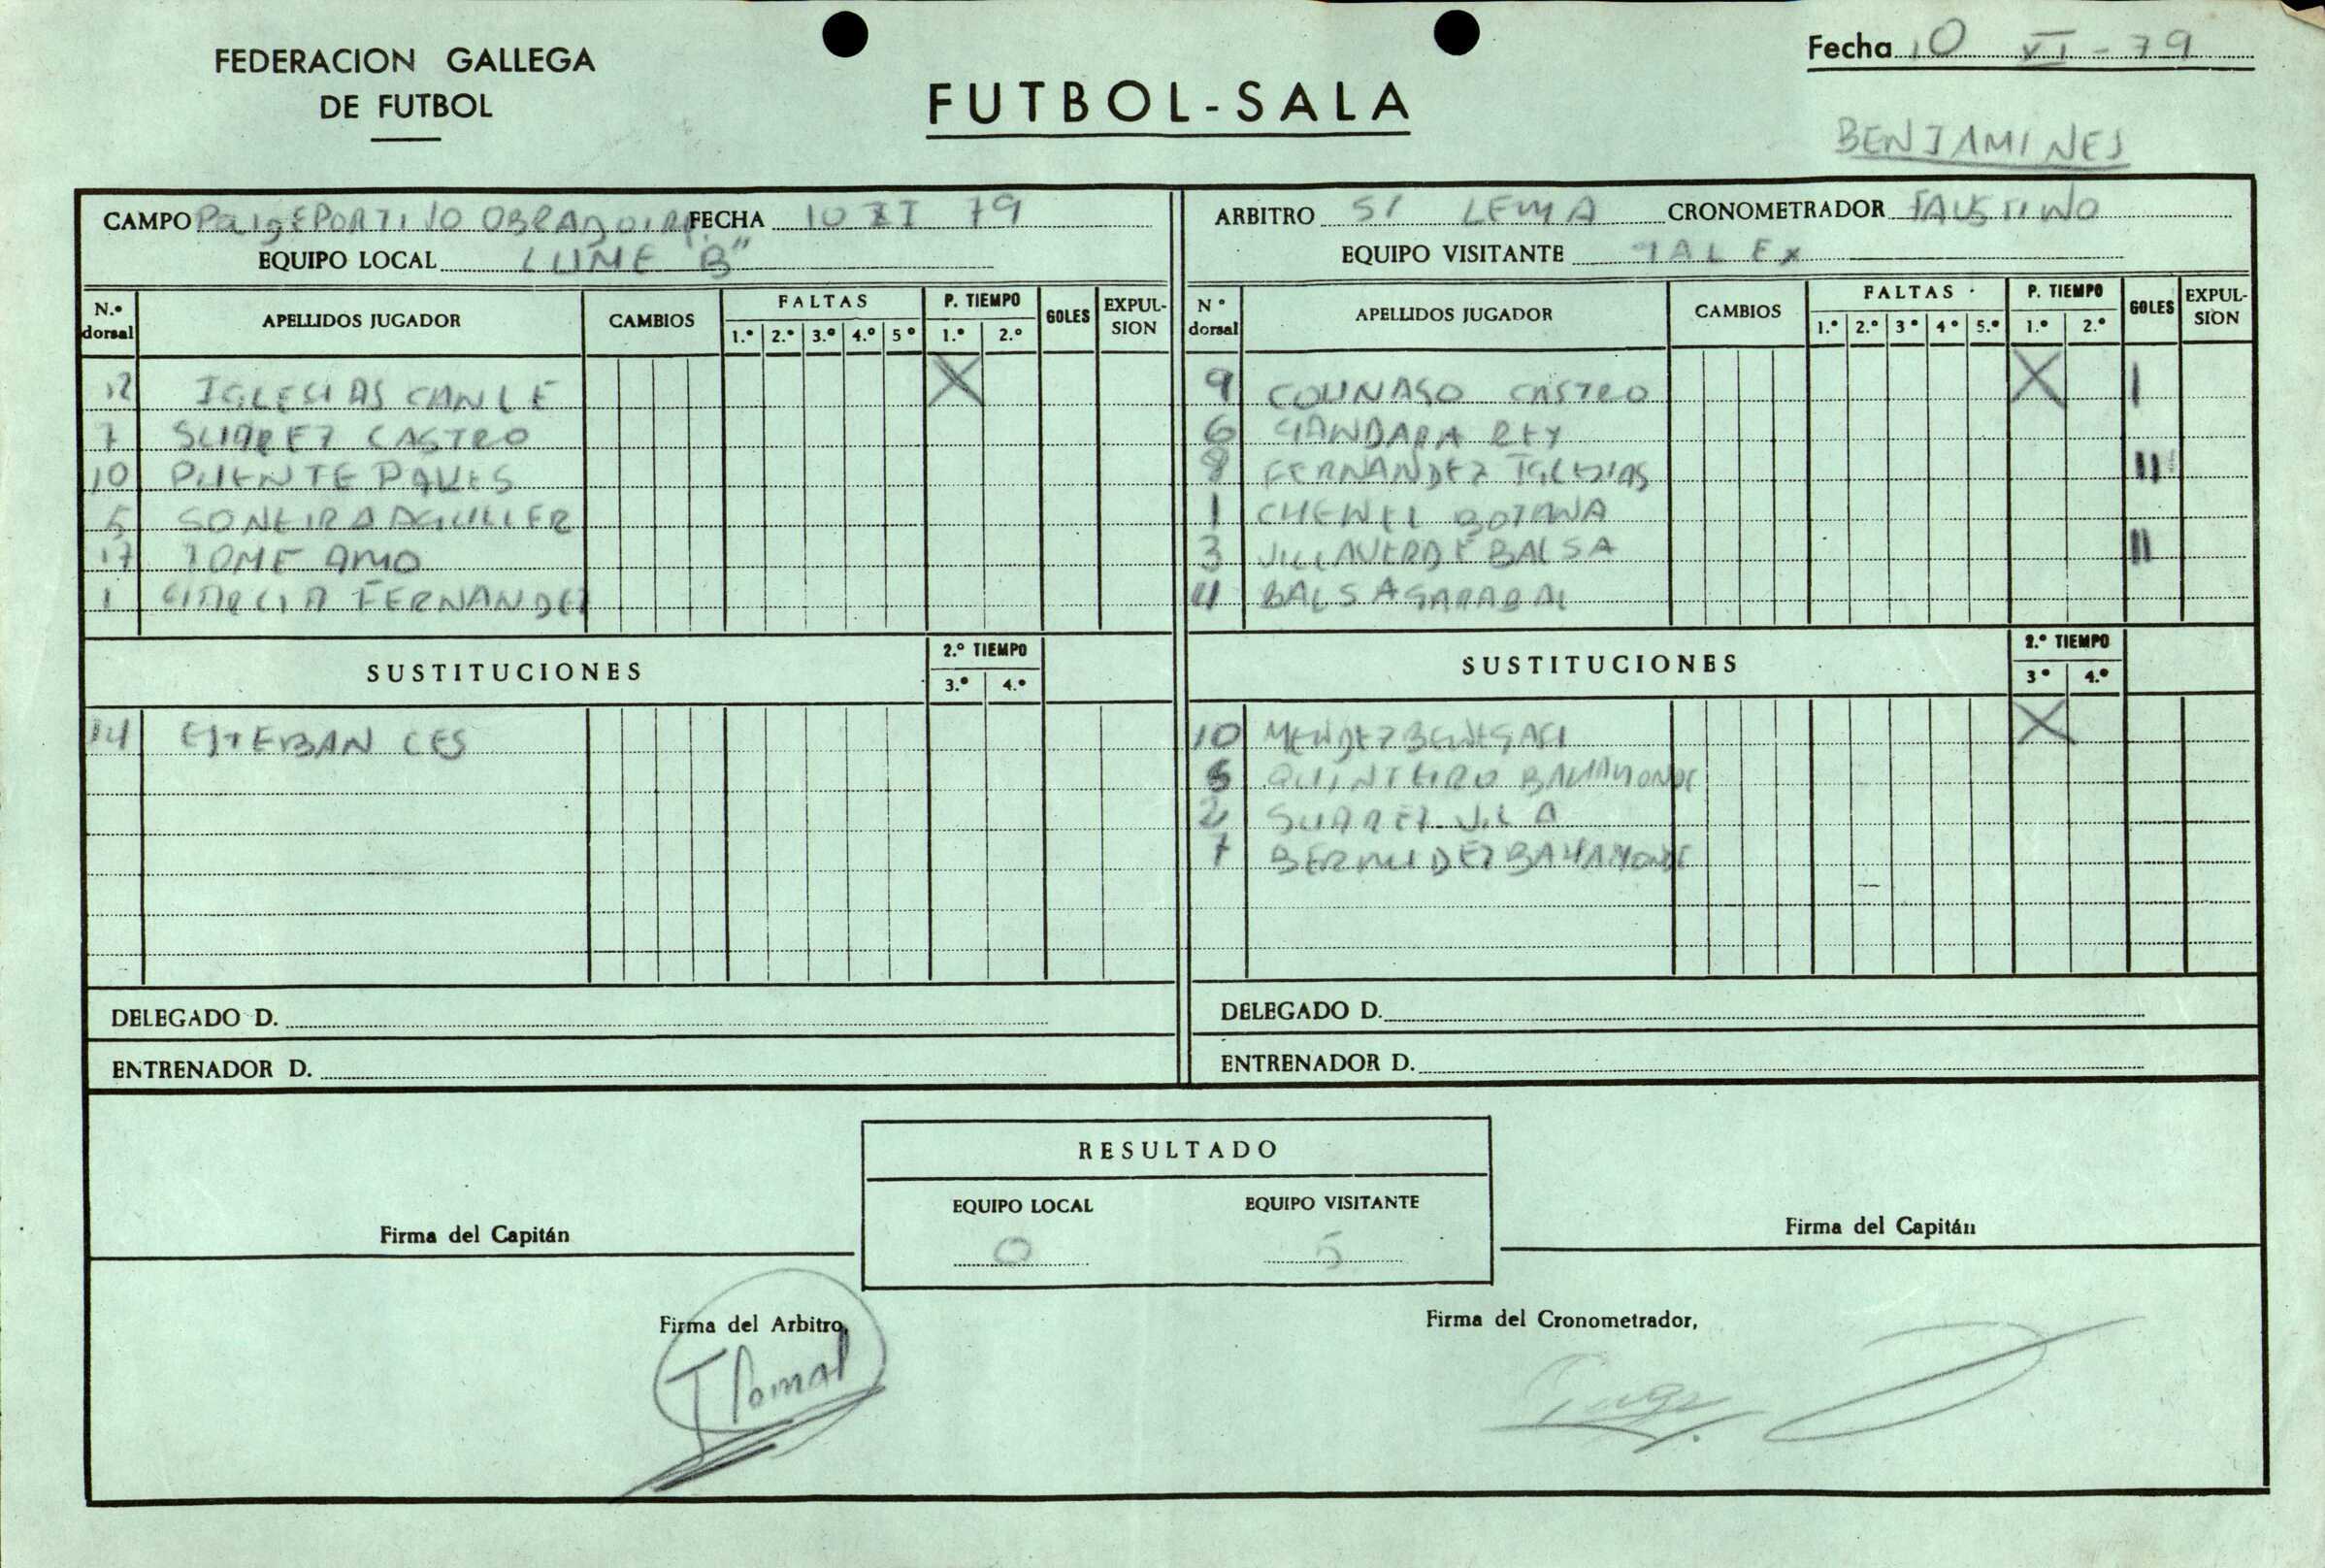 FEDERACION GALLEGA
DE FUTBOL
FUTBOL-SALA
Fecha 10 XI - 79
BENJAMINES
CAMPO POLIDEPORTIVO OBRADOIRO FECHA 10 XI 79
EQUIPO LOCAL LUME "B"
N.º dorsal APELLIDOS JUGADOR CAMBIOS FALTAS 1.º 2.º 3.º 4.º 5º P. TIEMPO 1.º 2.º GOLES EXPULSION
12 IGLESIAS CANLE X
7 SUAREZ CASTRO
10 PUENTE
5 SONEIRA AGULLER
17 TOME AMO
1 GARCIA FERNANDEZ
SUSTITUCIONES 2.º TIEMPO 3.º 4.º
14 ESTEBAN CES
DELEGADO D.
ENTRENADOR D.
ARBITRO Sr LEMA CRONOMETRADOR FAUSTINO
EQUIPO VISITANTE GALEX
Nº dorsal APELLIDOS JUGADOR CAMBIOS FALTAS 1.º 2.º 3º 4º 5.º P. TIEMPO 1.º 2.º GOLES EXPULSION
9 COUÑAGO CASTRO X I
6 GANDARA REY
8 FERNANDEZ IGLESIAS II
1 CHENEL BOTANA
3 VILLAVERDE BALSA II
11 BALSA GARABAL
SUSTITUCIONES 2.º TIEMPO 3º 4.º
10 MENDEZ X
5 QUINTEIRO BAHAMONDE
2 SUAREZ VILA
7 BERMUDEZ BAHAMONDE
DELEGADO D.
ENTRENADOR D.
RESULTADO
EQUIPO LOCAL EQUIPO VISITANTE
0 5
Firma del Capitán
Firma del Capitán
Firma del Arbitro,
Firma del Cronometrador,